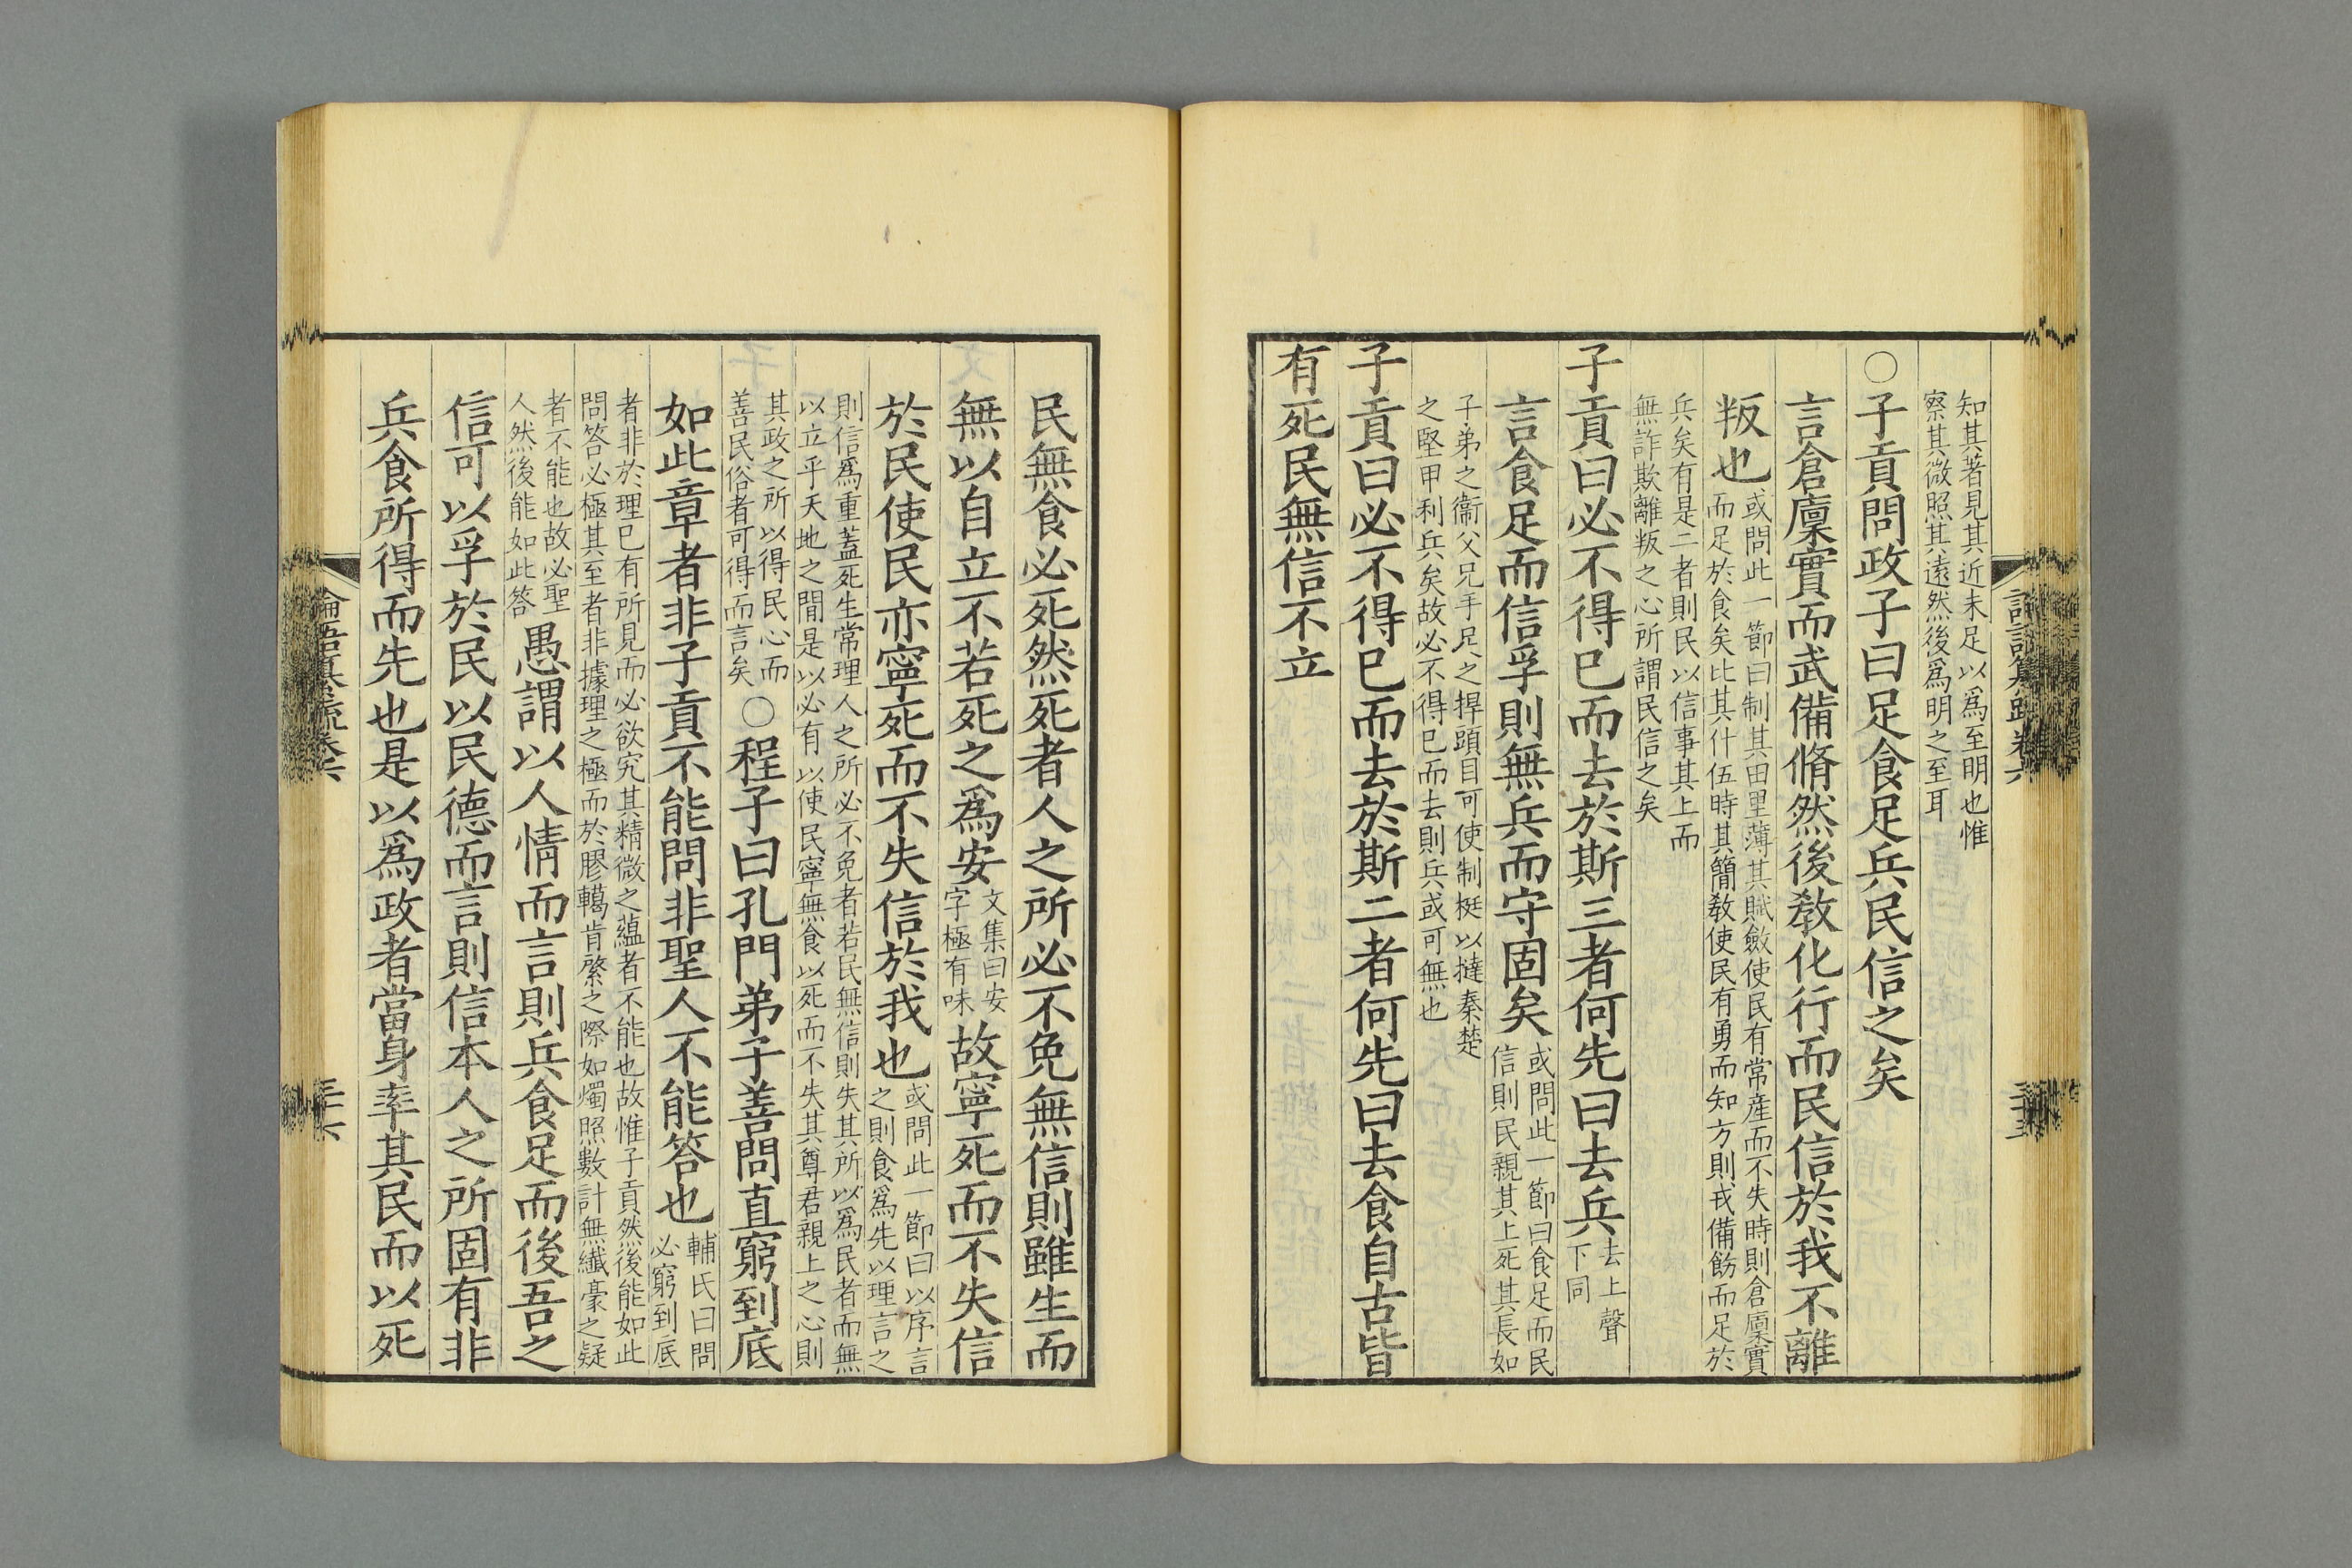 知其著見其近未足以爲至明也惟
察其微照其遠然後爲明之至耳
○子貢問政子曰足食足兵民信之矣
言倉廩實而武備脩然後教化行而民信於我不離
叛也
或問此一節曰制其田里薄其賦斂使民有常産而不失時則倉廩實
而足於食矣比其什伍時其簡教使民有勇而知方則戎備飭而足於
兵矣有是二者則民以信事其上而
無詐欺離叛之心所謂民信之矣
子貢曰必不得已而去於斯三者何先曰去兵
去上聲
下同
言食足而信孚則無兵而守固矣
或問此一節曰食足而民
信則民親其上死其長如
子弟之衞父兄手足之捍頭目可使制梃以撻秦楚
之堅甲利兵矣故必不得已而去則兵或可無也
子貢曰必不得已而去於斯二者何先曰去食自古皆
有死民無信不立
民無食必死然死者人之所必不免無信則雖生而
無以自立不若死之爲安
文集曰安
字極有味
故寧死而不失信
於民使民亦寧死而不失信於我也
或問此一節曰以序言
之則食爲先以理言之
則信爲重蓋死生常理人之所必不免者若民無信則失其所以爲民者而無
以立乎天地之閒是以必有以使民寧無食以死而不失其尊君親上之心則
其政之所以得民心而
善民俗者可得而言矣
○程子曰孔門弟子善問直窮到底
如此章者非子貢不能問非聖人不能答也
輔氏曰問
必窮到底
者非於理已有所見而必欲究其精微之蘊者不能也故惟子貢然後能如此
問答必極其至者非據理之極而於膠轕肯綮之際如燭照數計無纖豪之疑
者不能也故必聖
人然後能如此答
愚謂以人情而言則兵食足而後吾之
信可以孚於民以民德而言則信本人之所固有非
兵食所得而先也是以爲政者當身率其民而以死